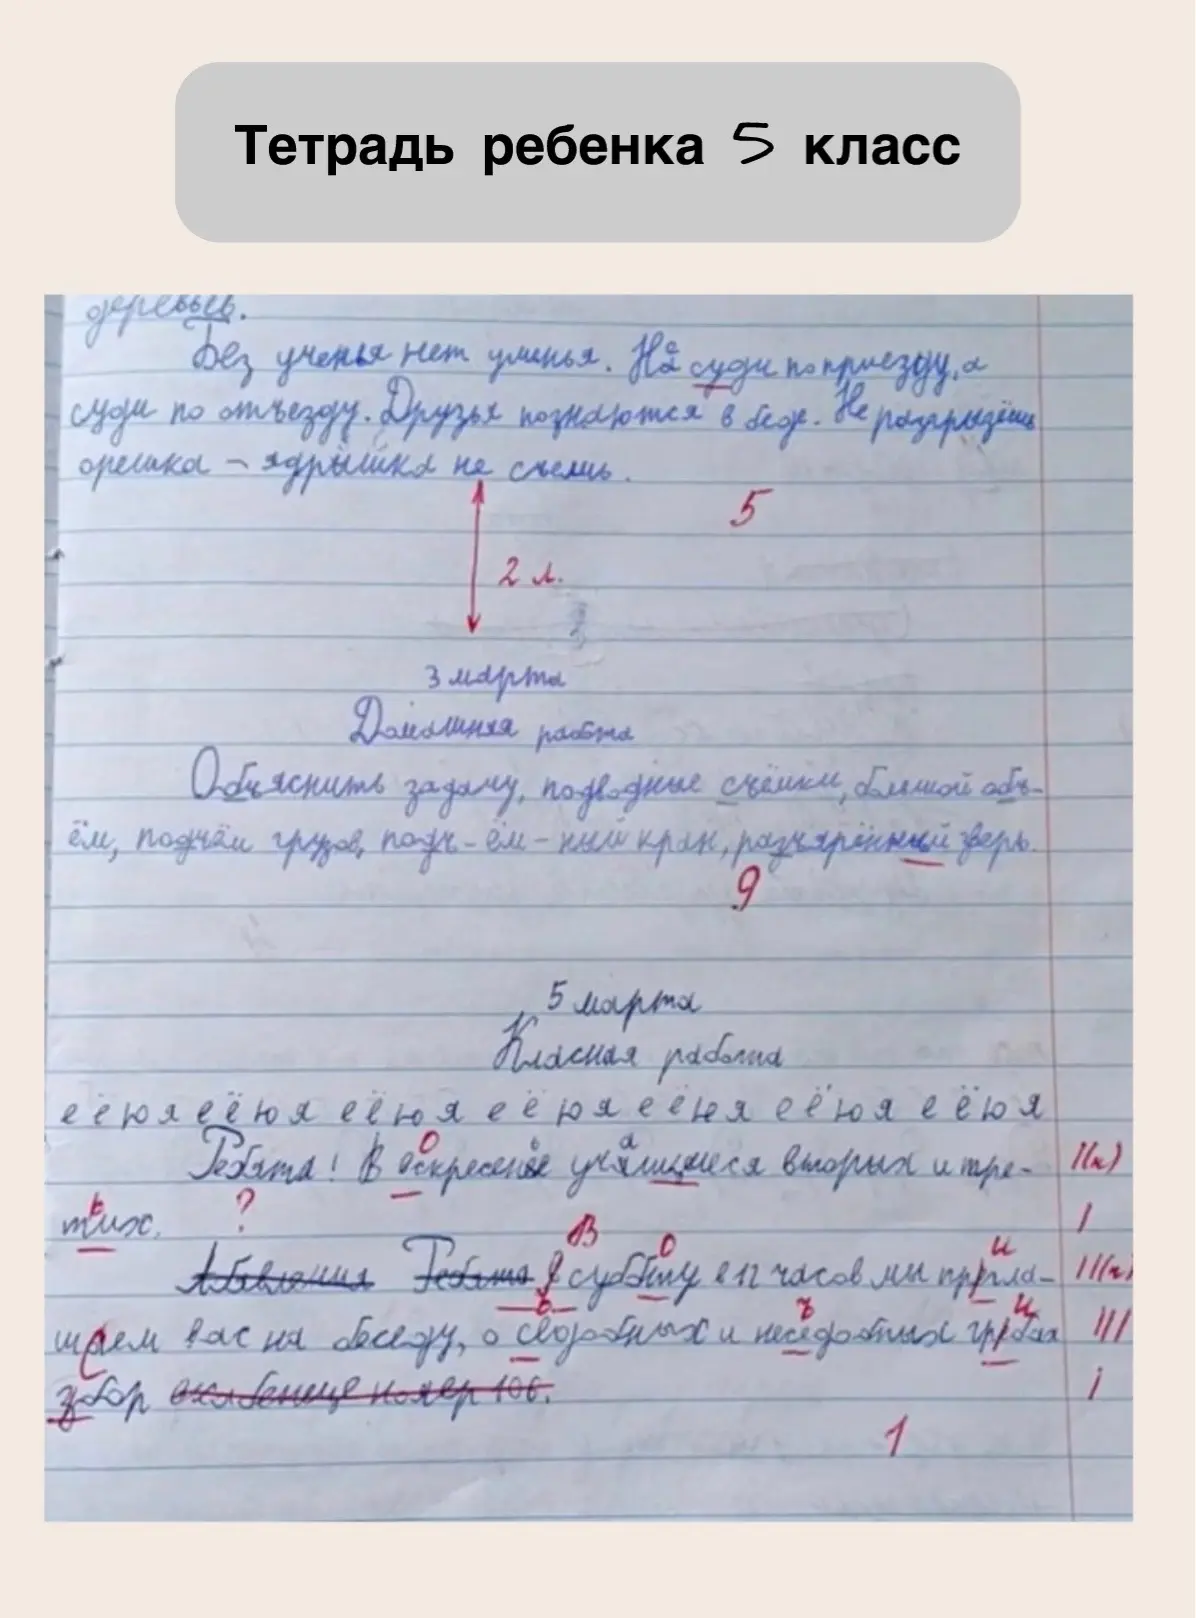 Тетрадь ребенка 5 класс
деревьев.
Без ученья нет уменья. Не суди по приезду, а
суди по отъезду. Друзья познаются в беде. Не разгрызёшь
орешка – ядрышка не съешь.
5
2 л.
3 марта
Домашняя работа
Объяснить задачу, подводные съёмки, большой объ-
ём, подъём грузов, подъ-ём-ный кран, разъярённый зверь.
9
5 марта
Класная работа
е ё ю я е ё ю я е ё ю я е ё ю я е ё ю я е ё ю я е ё ю я
о а
Ребята! В воскресенье учащиеся вторых и тре- II(х)
ь ?
тих. I
В о и
Ребята в суббту в 12 часов мы пргла- III(х)
ъ и
шаем вас на беседу, о сьедобных и неседобных грбах III
с
збор номер 106. I
1